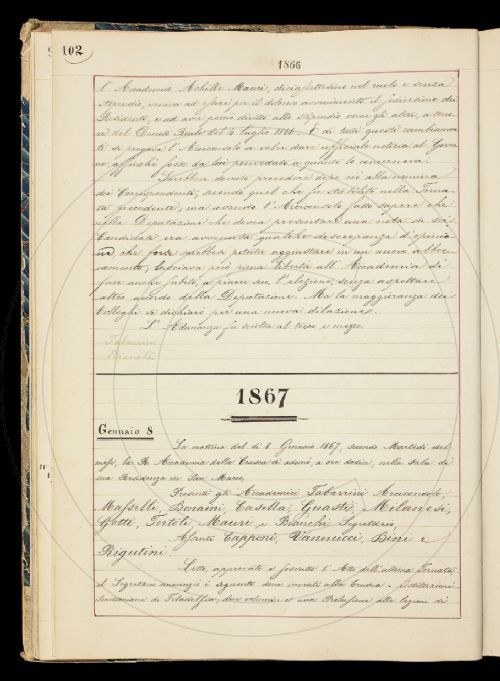 102
1866
l'Accademico Achille Mauri, diciassettesimo nel ruolo e senza
stipendio, veniva ad essere per il debito avvenimento il sedicesimo dei
Residenti, e ad aver perciò diritto allo stipendio come gli altri, a tenore
del Decreto Reale del 4 luglio 1866. E di tutti questi cambiamen
ti si pregava l'Arciconsolo a voler dare ufficiale notizia al Gover
no, affinchè fosse da lui provveduto a quanto lo concerneva.
Sarebbesi dovuto procedere dopo ciò alla nomina
dei Corrispondenti, secondo quel che fu stabilito nella Torna
ta precedente; ma avendo l'Arciconsolo fatto sapere che
nella Deputazione che doveva presentare una nota di sei
Candidati era avvenuta qualche discrepanza d'opinio
ne, che forse sarebbesi potuta aggiustare in un nuovo abboc
camento, lasciava però piena libertà all'Accademia di
fare anche subito, a piacer suo, l'elezione, senza aspettare
altro accordo della Deputazione. Ma la maggioranza dei
Colleghi si dichiarò per una nuova dilazione.
L'Adunanza fu sciolta al tocco e mezzo.
Tabarrini
Bianchi
1867
Gennaio 8.
La mattina del dì 8 Gennaio 1867, secondo Martedì del
mese, la R. Accademia della Crusca si adunò a ore dodici, nella Sala di
sua Residenza in San Marco,
Presenti gli Accademici Tabarrini Arciconsolo,
Masselli, Bonaini, Casella, Guasti, Milanesi,
Tortoli, Mauri e Bianchi Segretario,
Assenti Capponi, Vannucci, Bini e
Rigutini.
Letto, approvato e soscritto l'Atto dell'ultima Tornata,
il Segretario annunzia i seguenti doni inviati alla Crusca:
Smitsoniana di Filadelfia, due volumi: e una Prolusione alle lezioni di